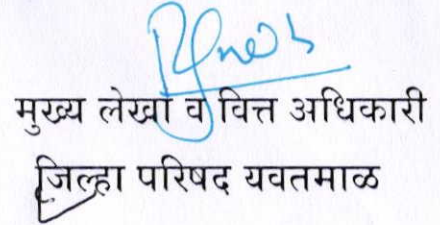 मुख्य लेखा व वित्त अधिकारी
जिल्हा परिषद यवतमाळ